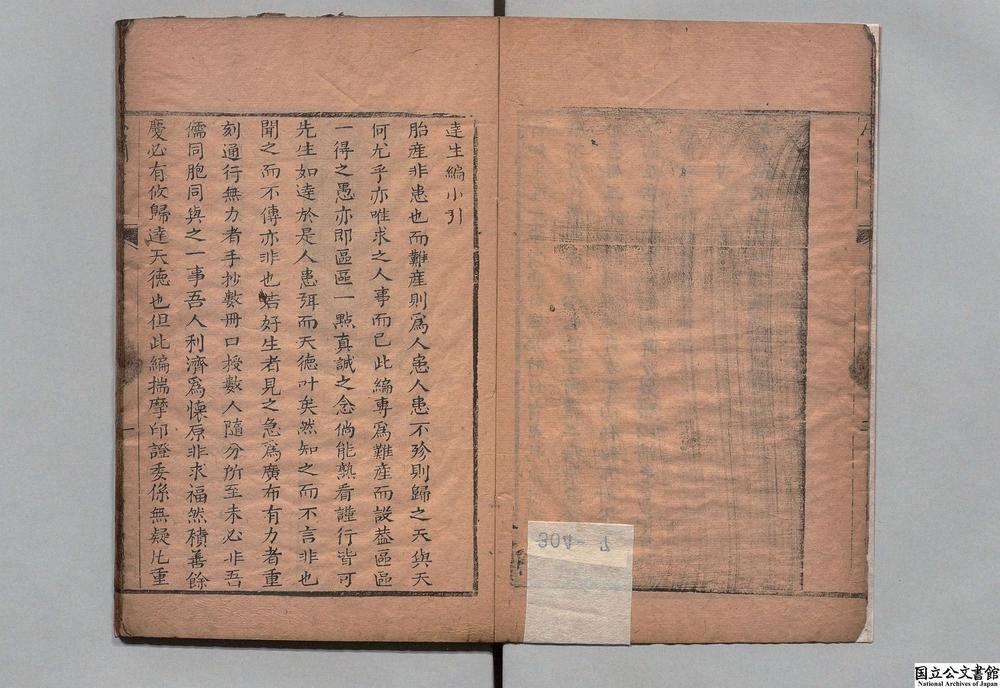 達生編小引
胎產非患也而難產則爲人患人患不殄則歸之天與天
何尤乎亦唯求之人事而已此編專爲難產而設葢區區
一得之愚亦即區區一點真誠之念倘能熟看謹行皆可
先生如達於是人患弭而天德叶矣然知之而不言非也
聞之而不傳亦非也若好生者見之急爲廣布有力者重
刻通行無力者手抄數冊口授數人隨分所至未必非吾
儒同胞同與之一事吾人利濟爲懷原非求福然積善餘
慶必有攸歸達天德也但此編揣摩印證委係無疑凢重
一
304-7
国立公文書館
National Archives of Japan